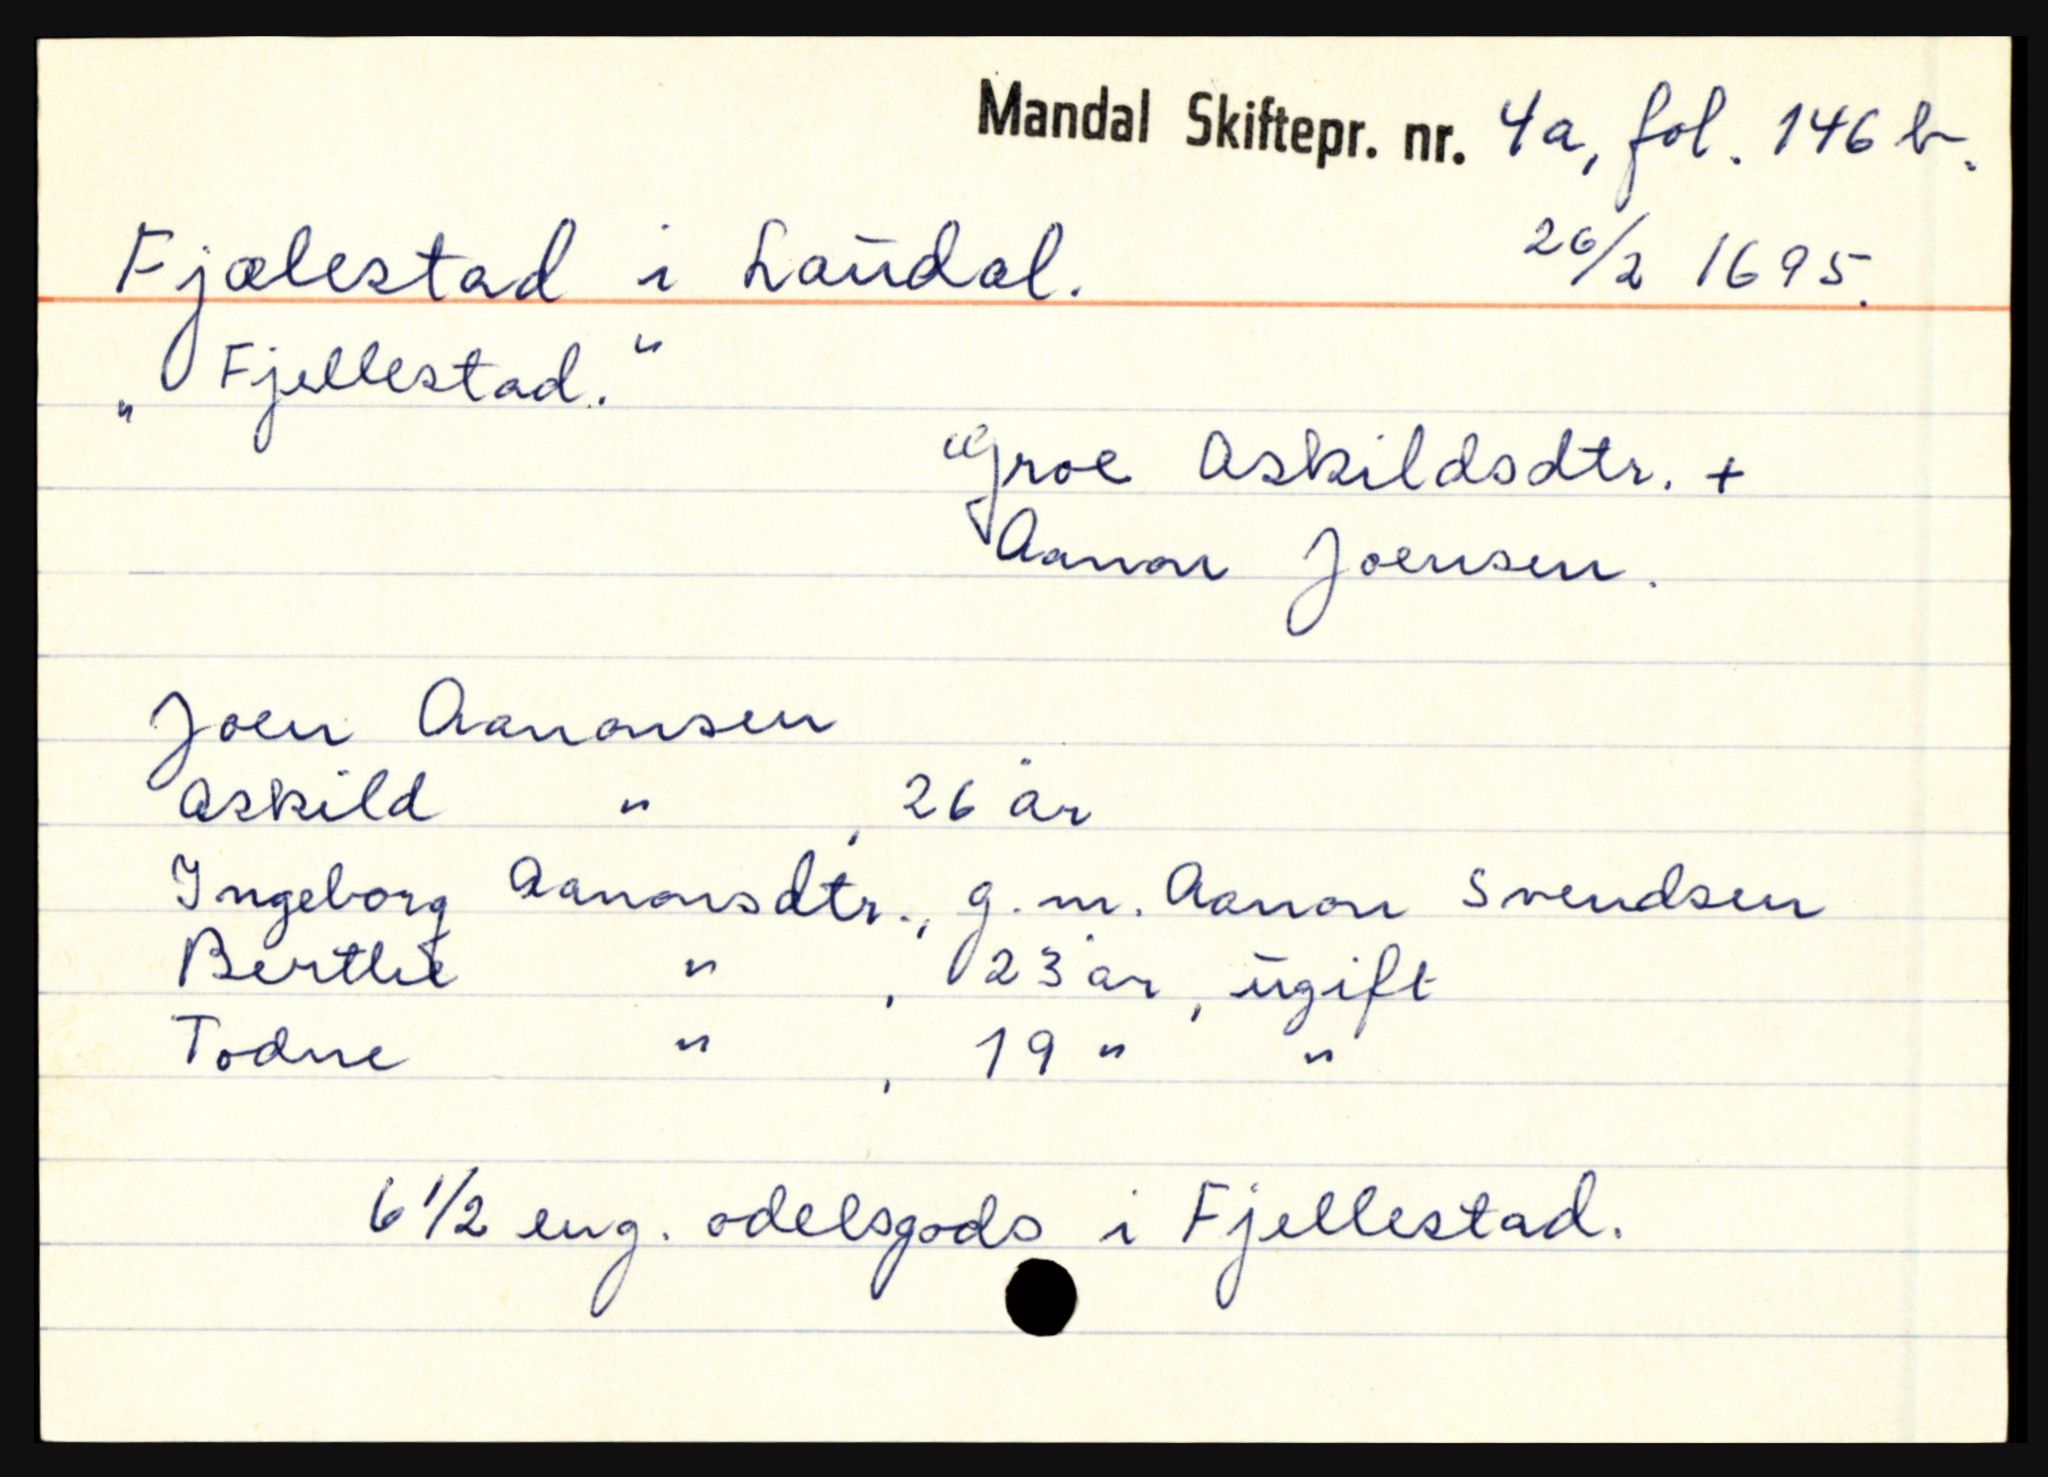 Mandal Skiftepr. nr. 4a, fol. 146 b.
Fjælestad i Laudal. 26/2 1695.
„Fjellestad."
Groe Askildsdtr. +
Aanon Joensen.
Joen Aanonsen
Askild " , 26 år
Ingeborg Aanonsdtr., g.m. Aanon Svendsen
Berthe " , 23 år, ugift
Todne " , 19 " "
6 1/2 eng. odelsgods i Fjellestad.